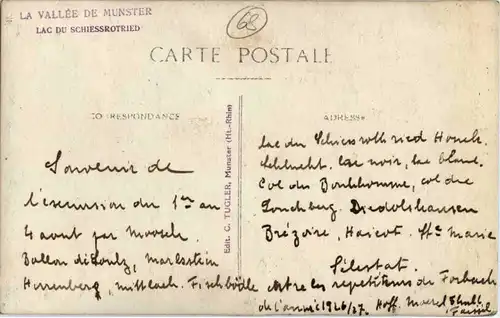 LA VALLÉE DE MUNSTER
LAC DU SCHIESSROTRIED
68
CARTE POSTALE
CORRESPONDANCE
ADRESSE
Edit. G. TUGLER, Munster (Ht.-Rhin)
Souvenir de
l'excursion du 1er au
4 aout par Moosch
Ballon de Soultz, Markstein
Herrenberg, Mittlach. Fischbödle
Lac du Schiessrothried Honeck.
Schlucht. Lac noir, lac blanc.
Col du Bonhomme, col du
Louchberg. Diedolshausen
Brézoire, Haicot. Ste Marie
Sélestat.
les repetiteurs de Forbach
de l'année 1926/27. Hoff. Marcel